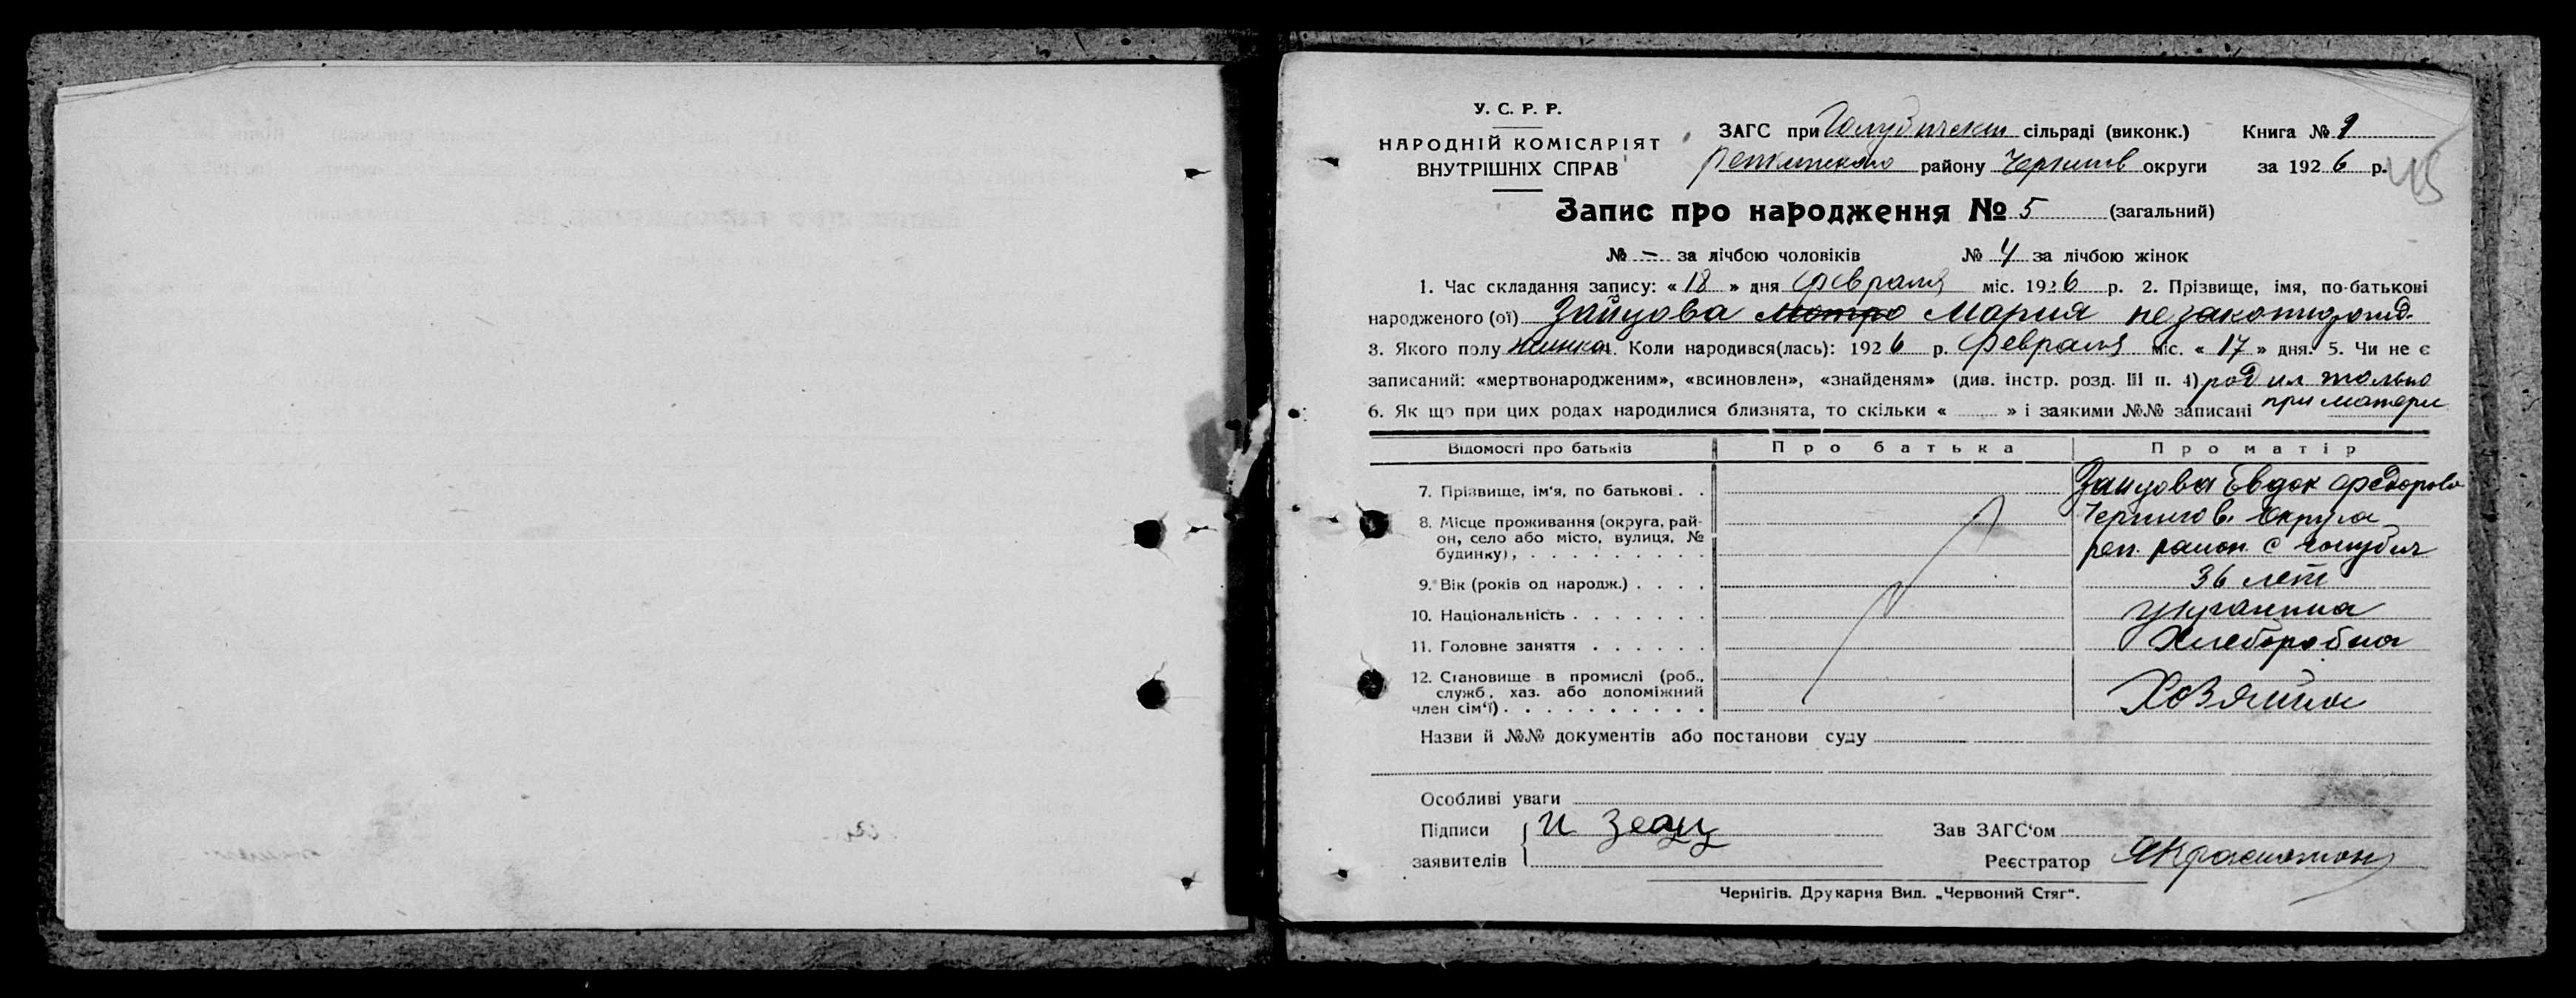 У. С. Р. Р.
НАРОДНІЙ КОМІСАРІЯТ
ВНУТРІШНІХ СПРАВ
ЗАГС при Голубическ сільраді (виконк.) Книга № 1
Репкинского району Чернигов округи за 1926 р.
45
Запис про народження № 5 (загальний)
№ – за лічбою чоловіків № 4 за лічбою жінок
1. Час складання запису: « 18 » дня февраля міс. 1926 р. 2. Прізвище, імя, по-батькові
народженого (ої) Зайцова Мотро Мария незаконорожд.
3. Якого полу женска 4. Коли народився(лась): 1926 р. февраля міс. « 17 » дня. 5. Чи не є
записаний: «мертвонародженим», «всиновлен», «знайденям» (див. інстр. розд. III п. 4) только
6. Як що при цих родах народилися близнята, то скільки « ..... » і заякими №№ записані при матери
Відомості про батьків Про батька Про матір
7. Прізвище, ім'я, по батькові . . Зайцова Евдок Федорова
8. Місце проживання (округа, рай- Чернигов. округа
он, село або місто, вулиця, № реп. район. с голубич
будинку), . . . . . . . . .
9. Вік (років од народж.) . . . . 36 лет
10. Національність . . . . . . . украинка
11. Головне заняття . . . . . . Хлеборобка
12. Становище в промислі (роб.,
служб, хаз. або допоміжний Хозяйка
член сім'ї) . . . . . . . . . .
Назви й №№ документів або постанови суду
Особливі уваги
Підписи И Зеац Зав ЗАГС'ом
заявителів Реєстратор
Чернігів. Друкарня Вид. „Червоний Стяг".